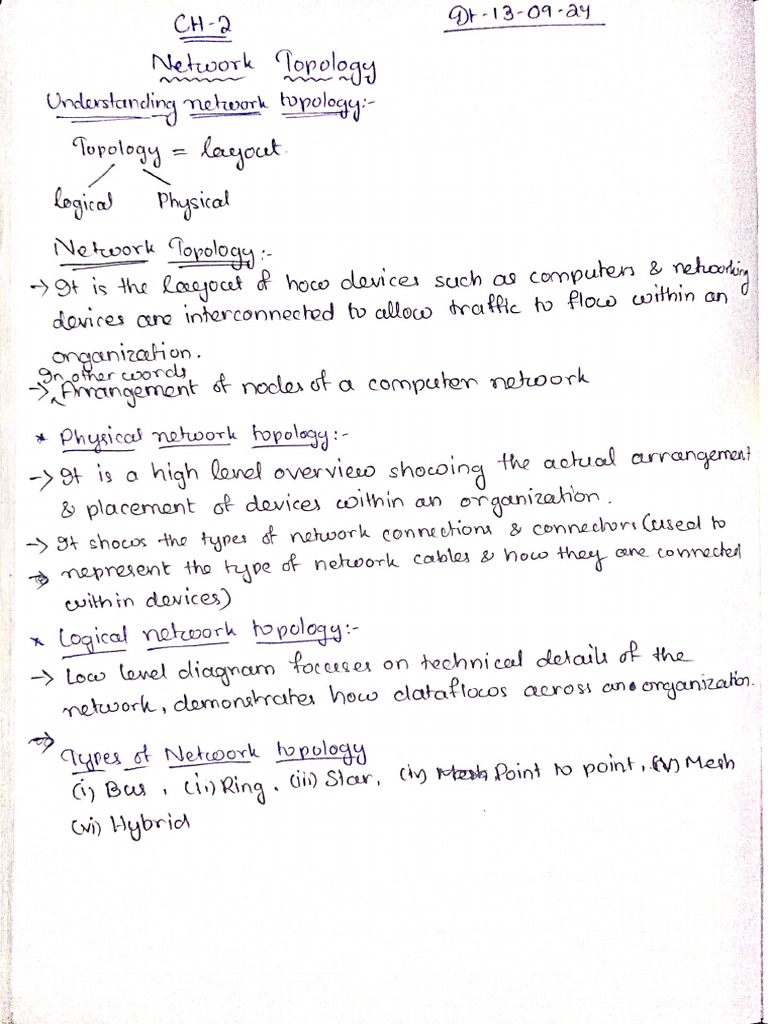 CH-2
Dt-13-09-24
Network Topology
Understanding network topology:-
Topology = layout.
logical Physical
Network Topology:-
→ It is the layout of how devices such as computers & networking
devices are interconnected to allow traffic to flow within an
organization.
In other words
→ ^ Arrangement of nodes of a computer network
* Physical network topology:-
→ It is a high level overview showing the actual arrangement
& placement of devices within an organization.
→ It shows the types of network connections & connectors (used to
→ represent the type of network cables & how they are connected
within devices)
* Logical network topology:-
→ Low level diagram focuses on technical details of the
network, demonstrates how dataflows across an organization.
→
Types of Network topology
(i) Bus, (ii) Ring, (iii) Star, (iv) Mesh Point to point, (v) Mesh
(vi) Hybrid